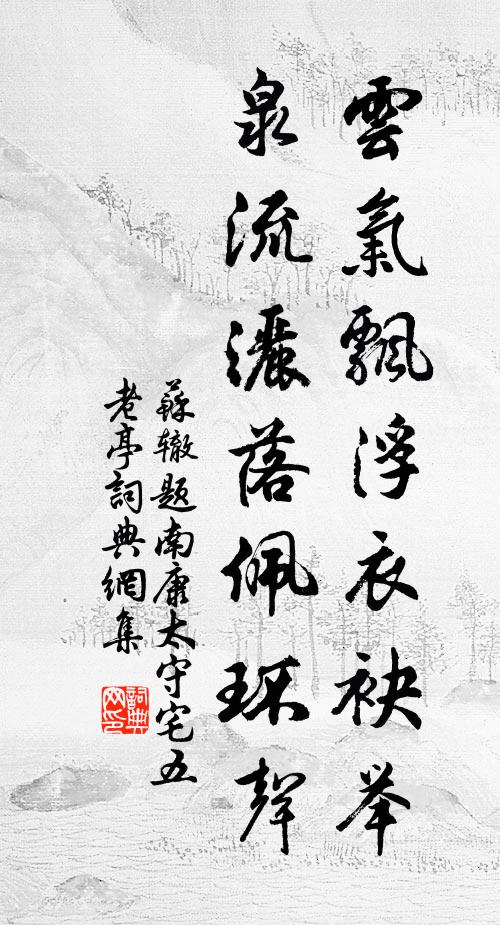 雲氣飄浮衣袂舉
泉流灑落佩環聲
蘇辙题南康太守宅五
老亭詞典網集
詞典网印